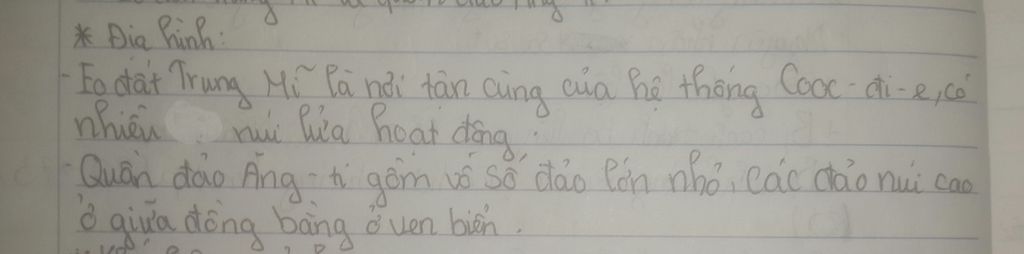 * Địa hình:
- Eo đất Trung Mĩ là nơi tân cùng của hệ thống Cooc-đi-e, có
nhiều núi lửa hoạt động.
- Quần đảo Ăng-ti gồm vô số đảo lớn nhỏ, các đảo núi cao
ở giữa đồng bằng ở ven biển.